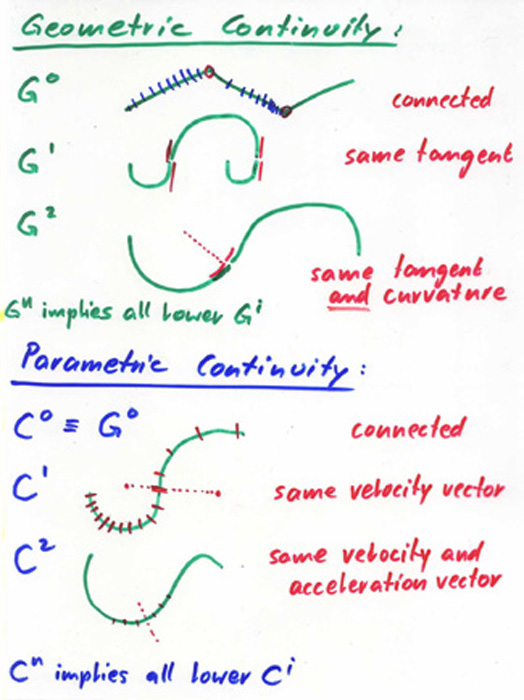 Geometric Continuity:
G⁰
connected
G¹
same tangent
G²
same tangent
and curvature
Gⁿ implies all lower Gⁱ
Parametric Continuity:
C⁰ ≡ G⁰
connected
C¹
same velocity vector
C²
same velocity and
acceleration vector
Cⁿ implies all lower Cⁱ